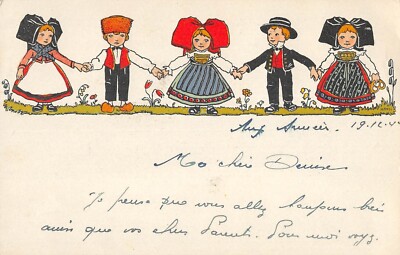 19.12.4
Ma chère Denise
Je pense que vous allez toujours bien
ainsi que vos chers Parents. Pour moi